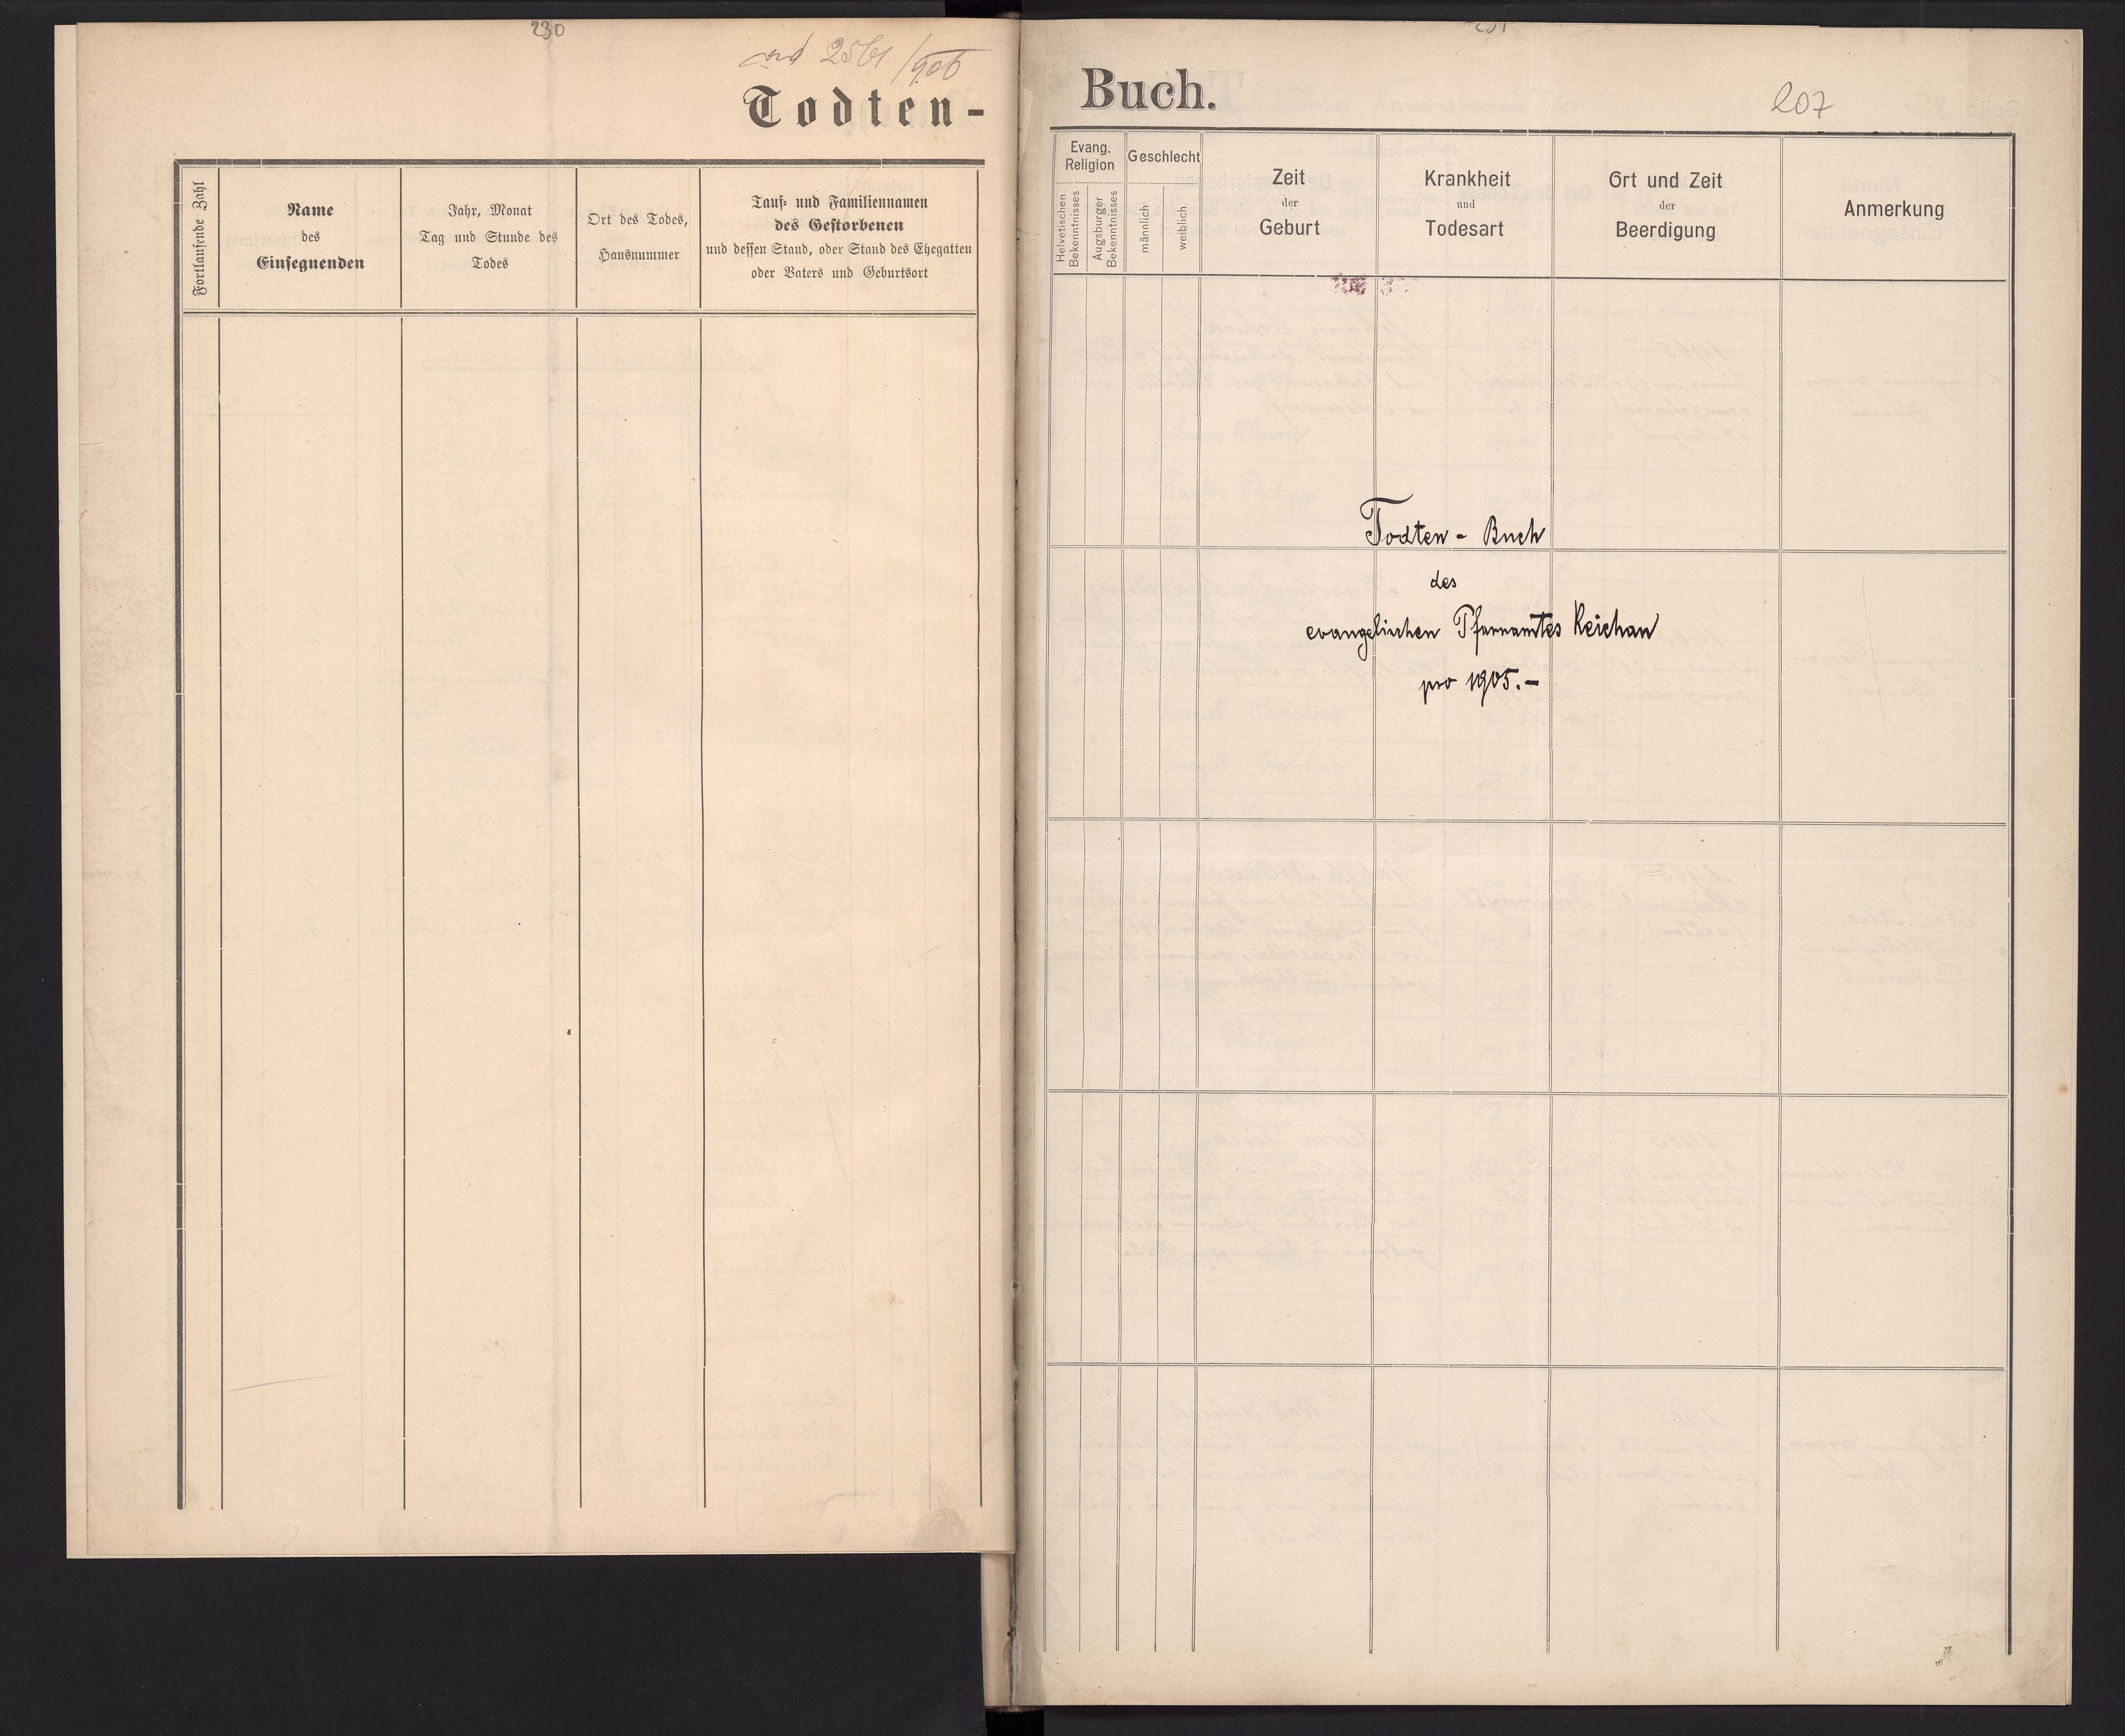 230
ad 2561/906
Todten-
Fortlaufende Zahl
Name
des
Einsegnenden
Jahr, Monat
Tag und Stunde des
Todes
Ort des Todes,
Hausnummer
Tauf- und Familiennamen
des Gestorbenen
und dessen Stand, oder Stand des Ehegatten
oder Vaters und Geburtsort
Buch.
207
Evang.
Religion
Helvetischen
Bekenntnisses
Augsburger
Bekenntnisses
Geschlecht
männlich
weiblich
Zeit
der
Geburt
Krankheit
und
Todesart
Ort und Zeit
der
Beerdigung
Anmerkung
Todten - Buch
des
evangelischen Pfarramtes Reichau
pro 1905.-